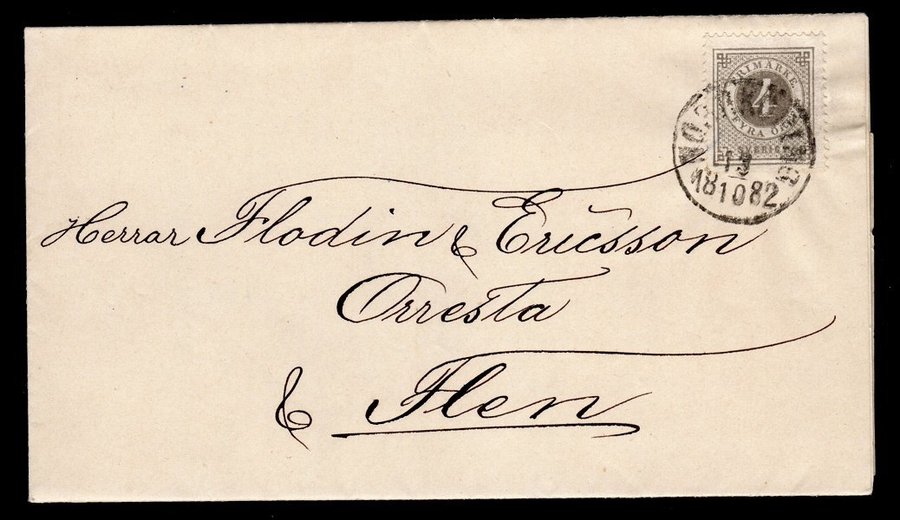 FRIMÄRKE
4
FYRA ÖRE
SVERIGE
13
18 10 82
Herrar Flodin & Ericsson
Orresta
& Flen